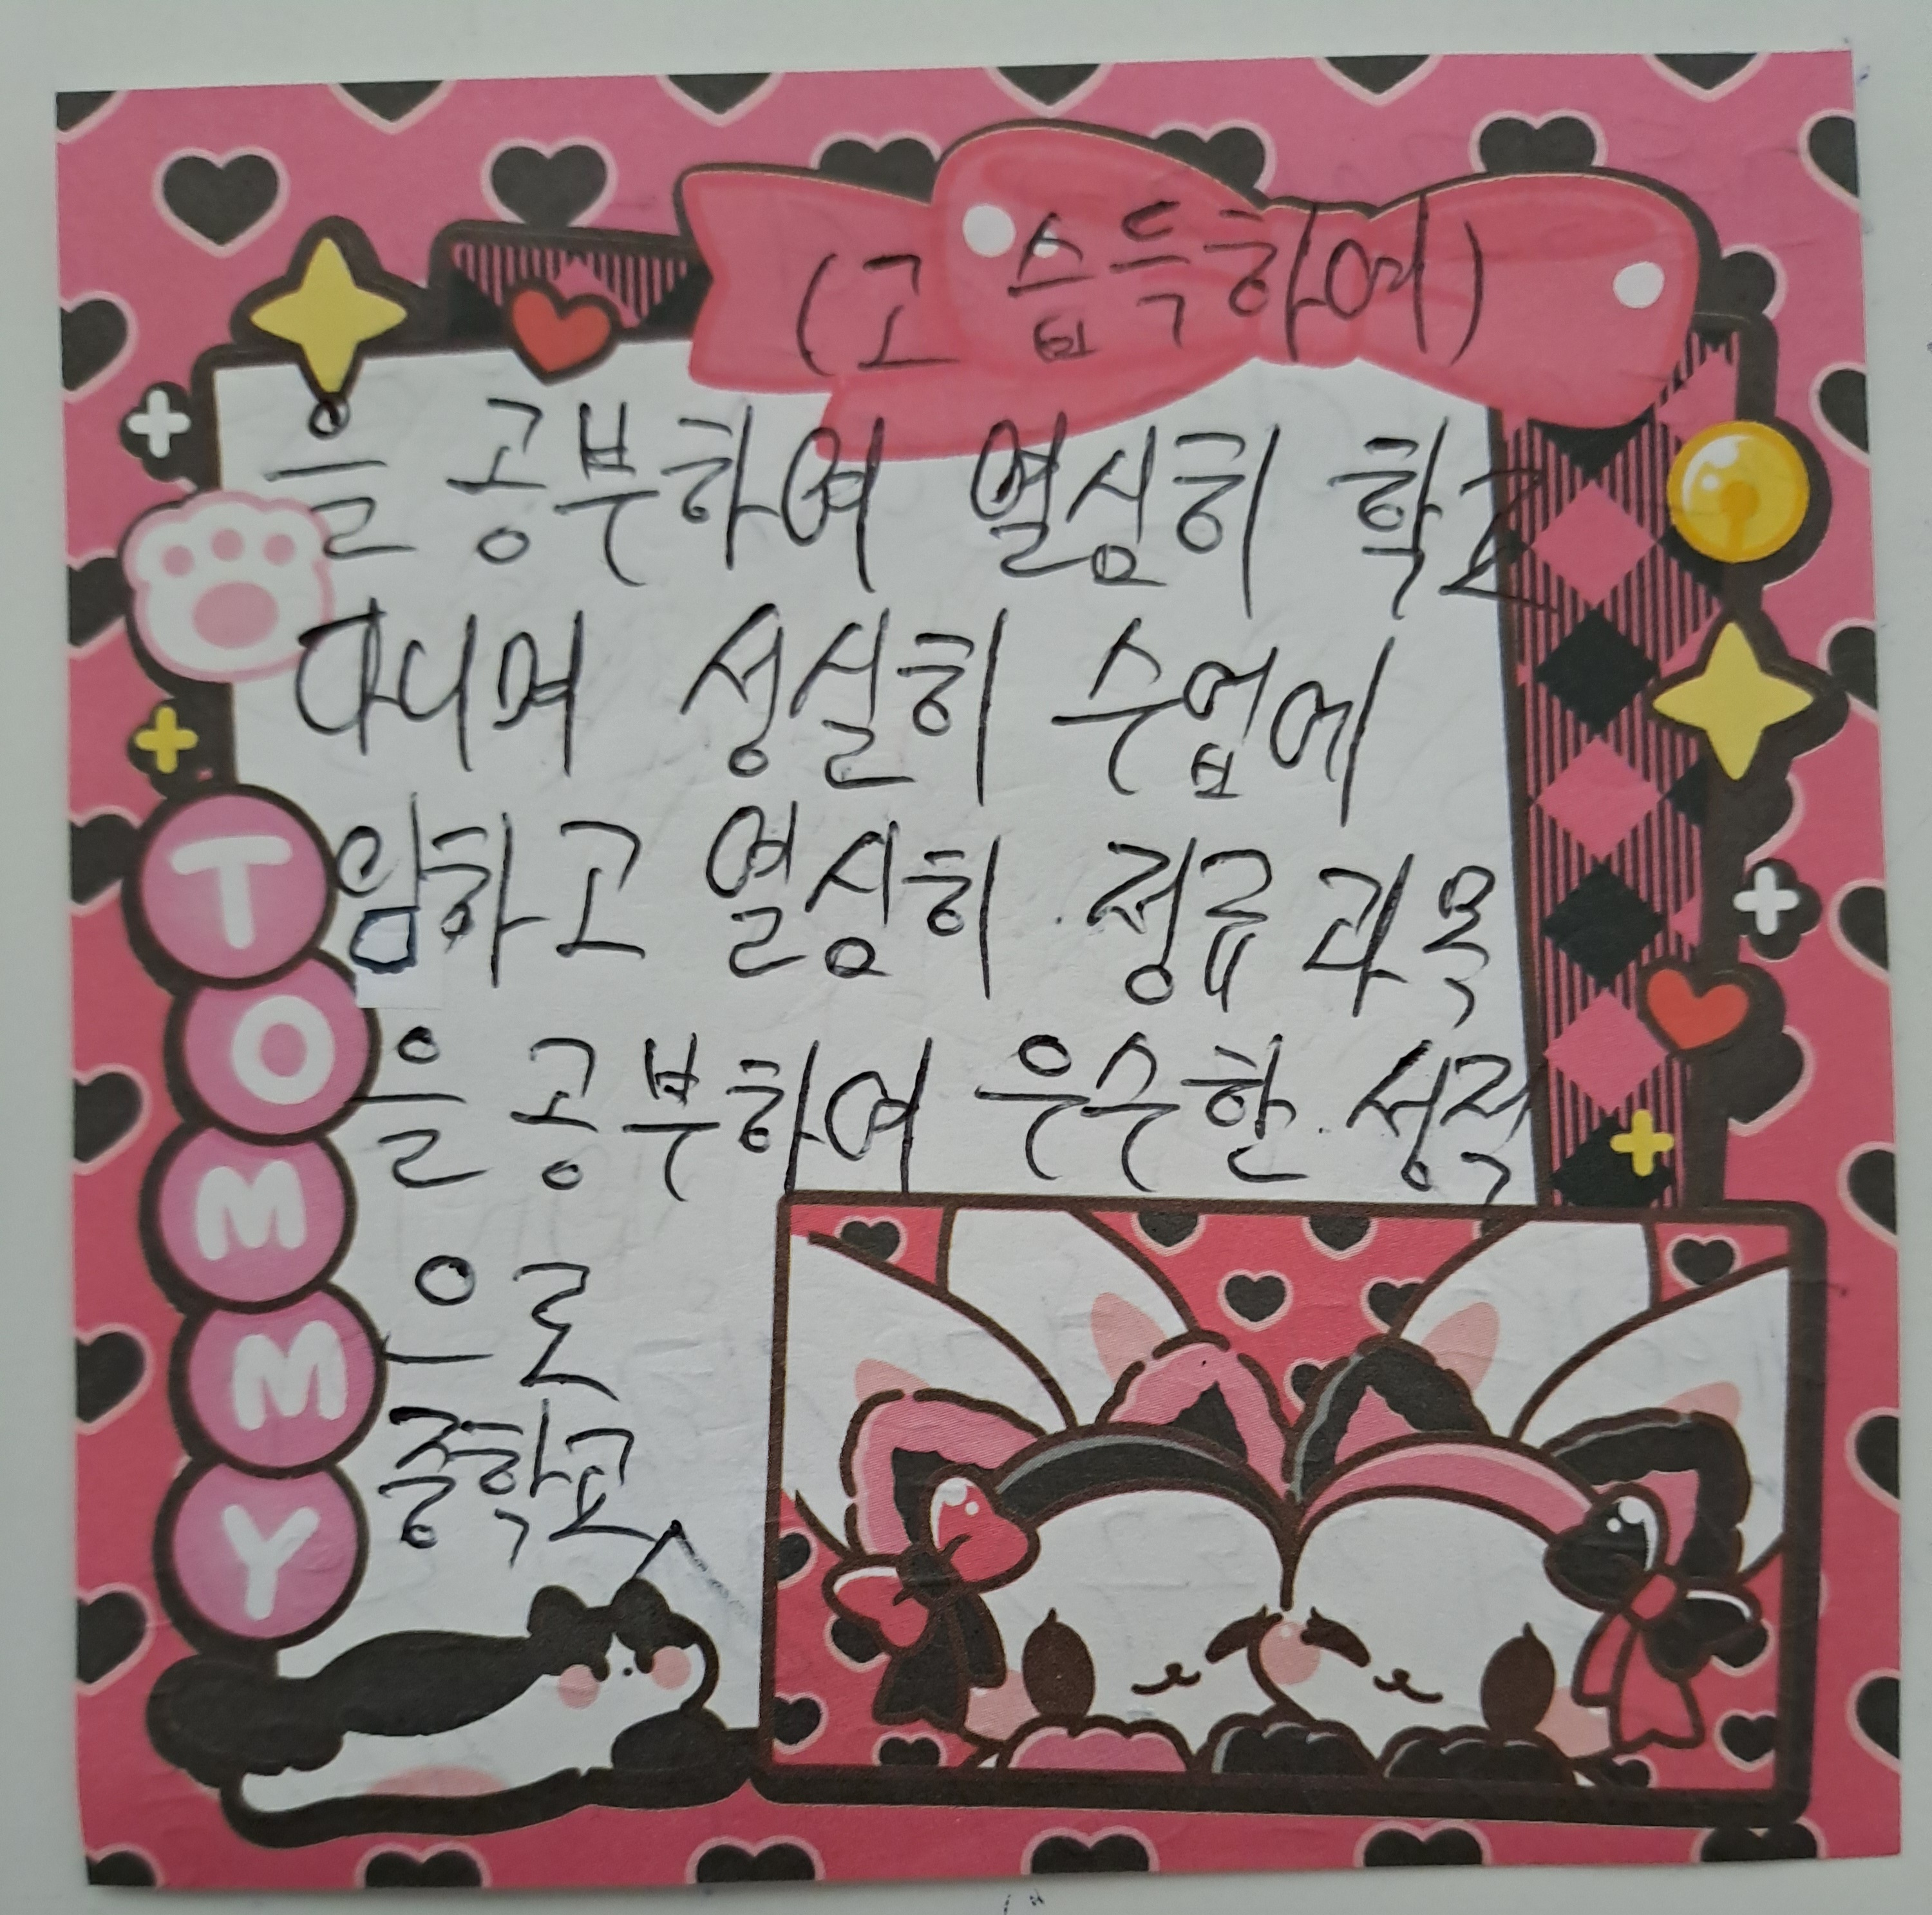 (고 습득하여)
을 공부하여 열심히 학교
다니며 성실히 수업에
임하고 열심히 정규 과목
을 공부하여 우수한 성적
으로
중학교
TOMMY